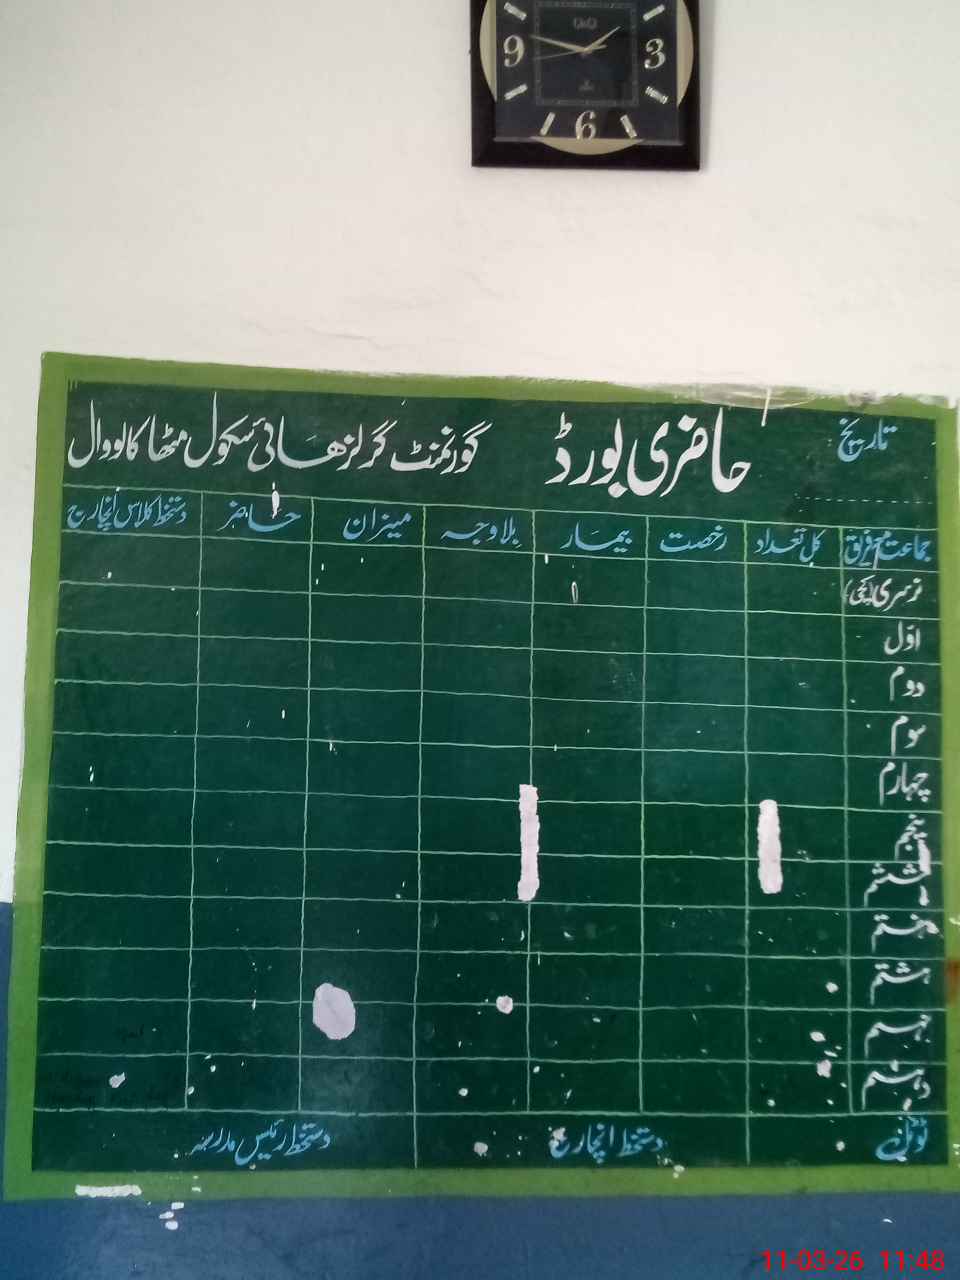 9 3
6
حاضری بورڈ گورنمنٹ گرلز ھائی سکول مٹھا کالووال
تاریخ
جماعت مع فریق کل تعداد رخصت بیمار بلاوجہ میزان حاضر دستخط کلاس انچارج
نرسری (کچی)
اوّل
دوم
سوم
چہارم
پنجم
ششم
ہفتم
ہشتم
نہم
دہم
ٹوٹل دستخط انچارج دستخط رئیس مدرسہ
11-03-26 11:48